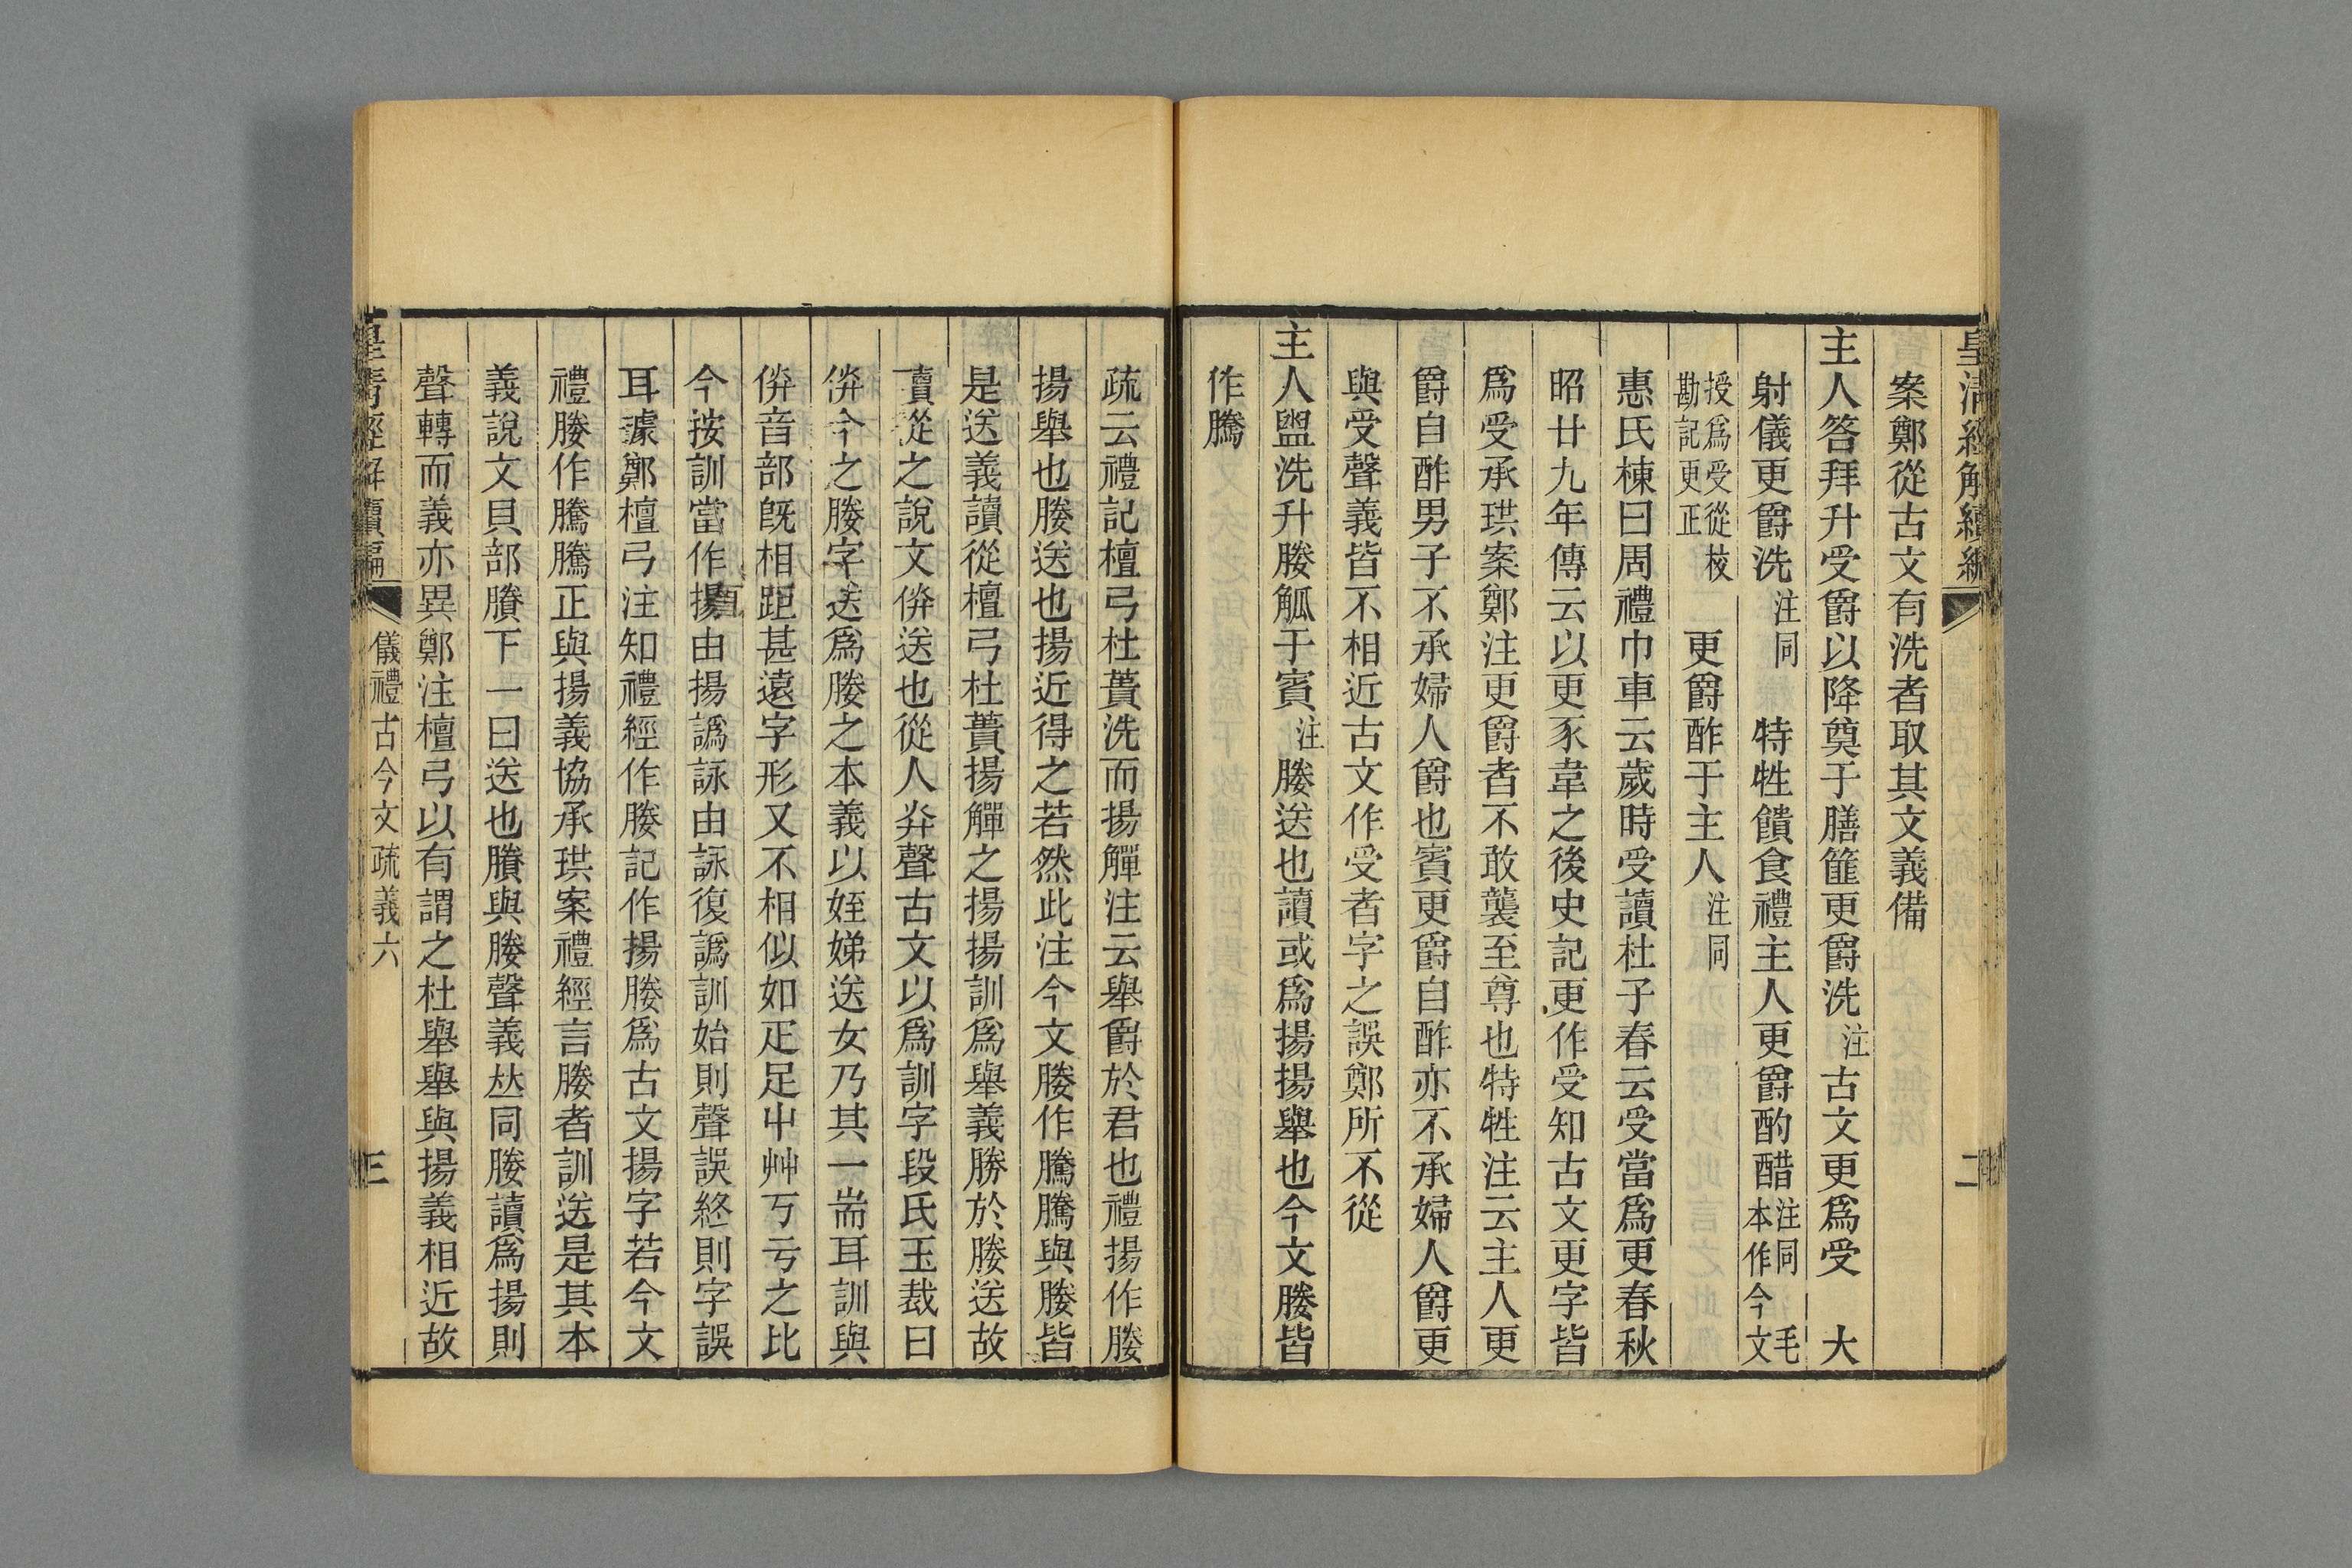 皇清經解續編
二
案鄭從古文有洗者取其文義備
主人答拜升受爵以降奠于膳篚更爵洗注古文更爲受 大
射儀更爵洗注同 特牲饋食禮主人更爵酌醋注同 毛本作今文
授爲受從校勘記更正 更爵酢于主人注同
惠氏棟曰周禮巾車云歲時受讀杜子春云受當爲更春秋
昭廿九年傳云以更豕韋之後史記更作受知古文更字皆
爲受承珙案鄭注更爵者不敢襲至尊也特牲注云主人更
爵自酢男子不承婦人爵也賓更爵自酢亦不承婦人爵更
與受聲義皆不相近古文作受者字之誤鄭所不從
主人盥洗升媵觚于賓注媵送也讀或爲揚揚舉也今文媵皆
作騰
疏云禮記檀弓杜蕢洗而揚觶注云舉爵於君也禮揚作媵
揚舉也媵送也揚近得之若然此注今文媵作騰騰與媵皆
是送義讀從檀弓杜蕢揚觶之揚揚訓爲舉義勝於媵送故
讀從之說文㑞送也從人灷聲古文以爲訓字段氏玉裁曰
㑞今之媵字送爲媵之本義以姪娣送女乃其一耑耳訓與
㑞音部旣相距甚遠字形又不相似如疋足屮艸丂亏之比
今按訓當作揚由揚譌詠由詠復譌訓始則聲誤終則字誤
耳據鄭檀弓注知禮經作媵記作揚媵爲古文揚字若今文
禮媵作騰騰正與揚義協承珙案禮經言媵者訓送是其本
義說文貝部賸下一曰送也賸與媵聲義竝同媵讀爲揚則
聲轉而義亦異鄭注檀弓以有謂之杜舉舉與揚義相近故
皇清經解續編
儀禮古今文疏義六
三